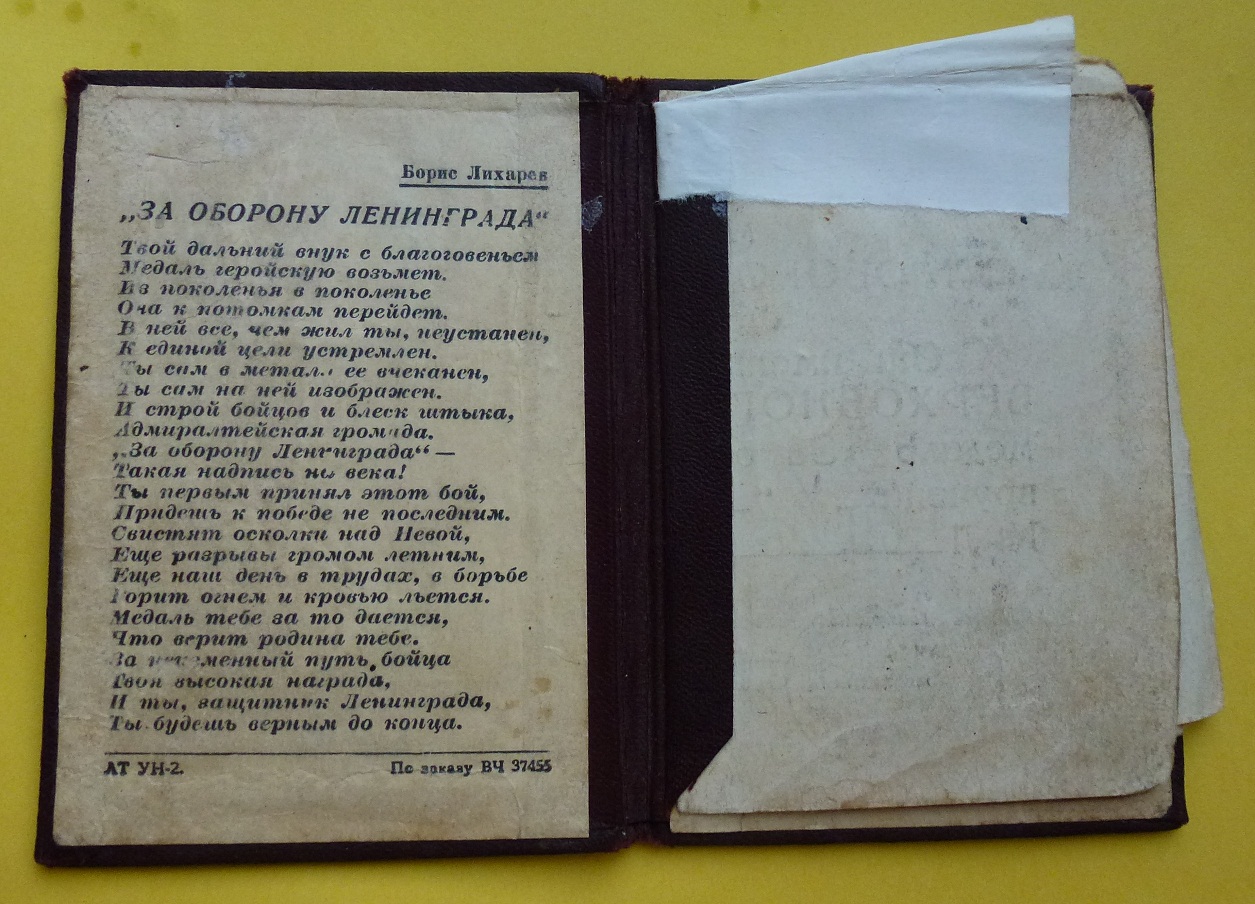 Борис Лихарев
„ЗА ОБОРОНУ ЛЕНИНГРАДА“
Твой дальний внук с благоговеньем
Медаль геройскую возьмет.
Из поколенья в поколенье
Она к потомкам перейдет.
В ней все, чем жил ты, неустанен,
К единой цели устремлен.
Ты сам в металл ее вчеканен,
Ты сам на ней изображен.
И строй бойцов и блеск штыка,
Адмиралтейская громада.
„За оборону Ленинграда“ —
Такая надпись на века!
Ты первым принял этот бой,
Придешь к победе не последним.
Свистят осколки над Невой,
Еще разрывы громом летним,
Еще наш день в трудах, в борьбе
Горит огнем и кровью льется.
Медаль тебе за то дается,
Что верит родина тебе.
За неизменный путь бойца
Твоя высокая награда,
И ты, защитник Ленинграда,
Ты будешь верным до конца.
АТ УН-2. По заказу ВЧ 37455